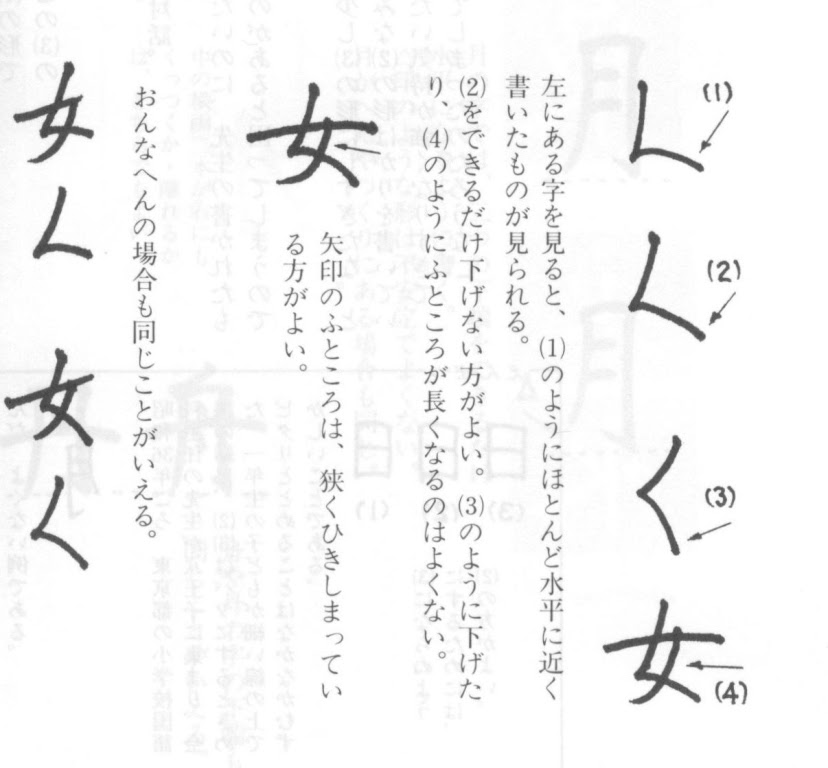 (1)
(2)
(3)
女
(4)
左にある字を見ると、(1)のようにほとんど水平に近く
書いたものが見られる。
(2)をできるだけ下げない方がよい。(3)のように下げた
り、(4)のようにふところが長くなるのはよくない。
女
矢印のふところは、狭くひきしまってい
る方がよい。
おんなへんの場合も同じことがいえる。
女
女